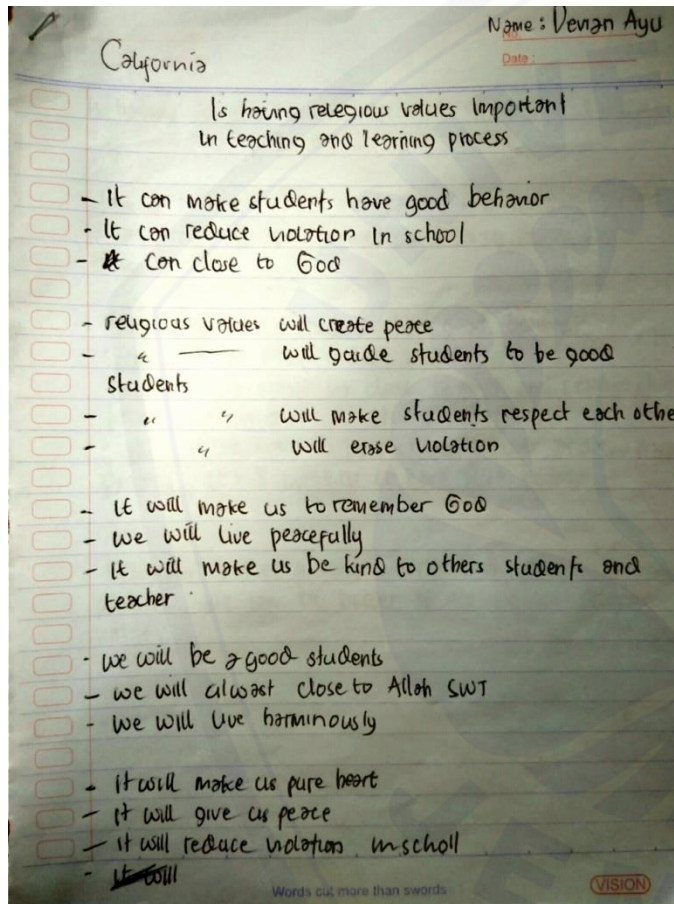 Name : Devian Ayu
No.
Date :
California
Is having relegious values important
in teaching and learning process
- It can make students have good behavior
- It can reduce violation in school
- It can close to God
- religious values will create peace
- " — will guide students to be good
students
- " " will make students respect each othe
- " will erase violation
- It will make us to remember God
- we will live peacefully
- It will make us be kind to others students and
teacher .
- we will be a good students
- we will alwast close to Allah SWT
- We will live harminously
- it will make us pure heart
- it will give us peace
- it will reduce violation in scholl
- it will
Words cut more than swords
VISION